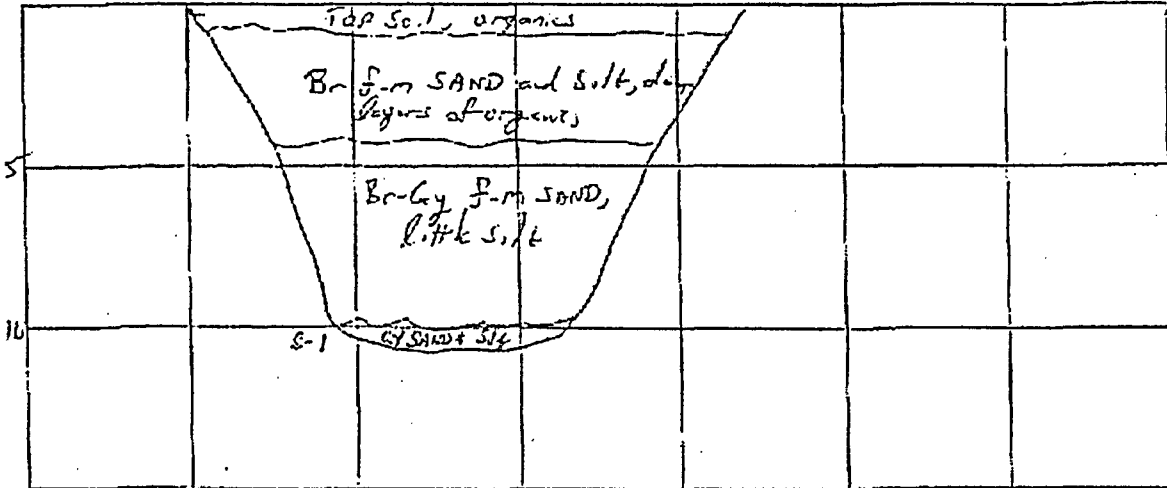 Top Soil, organics
Br f-m SAND and Silt,
layers of organics
5
Br-Gy f-m SAND,
little Silt
10
S-1 Gy SAND + Silt